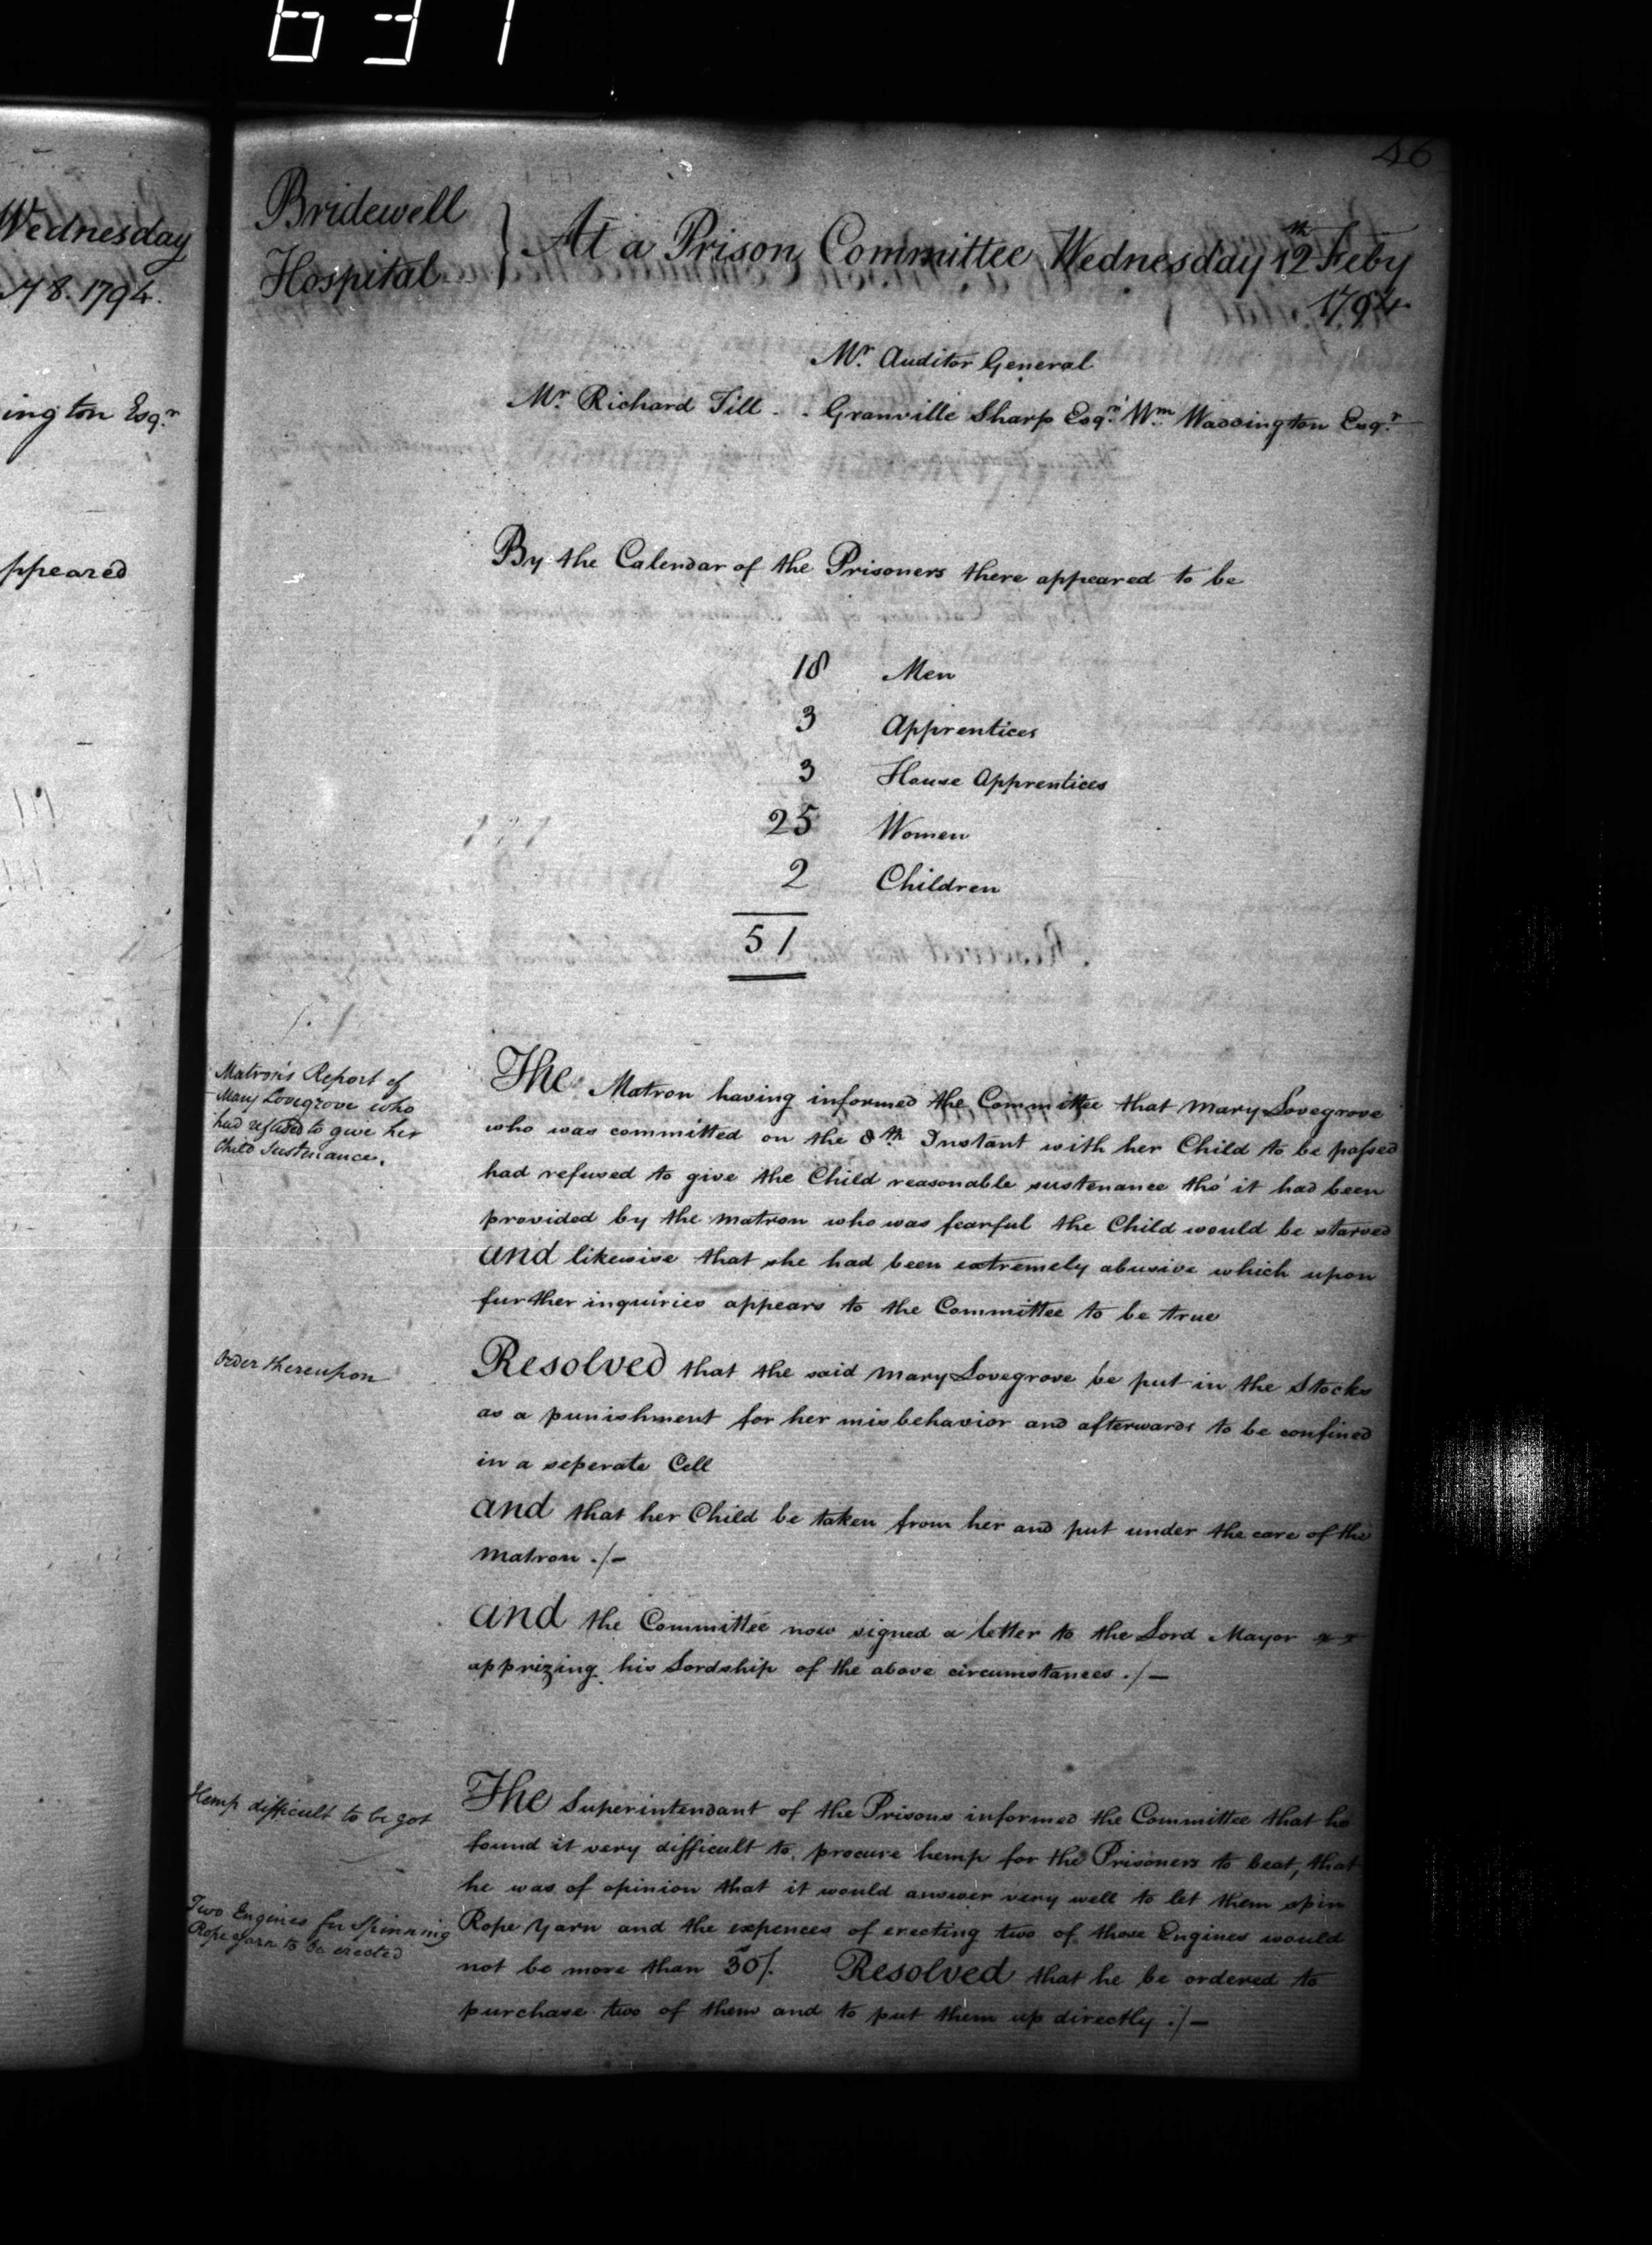 631
46
Wednesday
y 8. 1794.
ington Esqr.
ppeared
Bridewell
Hospital
At a Prison Committee Wednesday 12th Feby
1794.
Mr. Auditor General
Mr. Richard Till . . Granville Sharp Esqr. Wm. Waddington Esqr.
By the Calendar of the Prisoners there appeared to be
18 Men
3 Apprentices
3 House Apprentices
25 Women
2 Children
51
Matron's Report of
Mary Lovegrove who
had refused to give her
Child Sustenance.
The Matron having informed the Committee that Mary Lovegrove
who was committed on the 8th Instant with her Child to be passed
had refused to give the Child reasonable sustenance tho' it had been
provided by the Matron who was fearful the Child would be starved
and likewise that she had been extremely abusive which upon
further inquiries appears to the Committee to be true
Order thereupon
Resolved that the said Mary Lovegrove be put in the Stocks
as a punishment for her misbehavior and afterwards to be confined
in a seperate Cell
and that her Child be taken from her and put under the care of the
Matron ./-
and the Committee now signed a letter to the Lord Mayor
apprizing his Lordship of the above circumstances ./-
Hemp difficult to be got
The Superintendant of the Prisons informed the Committee that he
found it very difficult to procure hemp for the Prisoners to beat, that
he was of opinion that it would answer very well to let them spin
Two Engines for Spinning
Rope Yarn to be erected
Rope Yarn and the expences of erecting two of those Engines would
not be more than 30/. Resolved that he be ordered to
purchase two of them and to put them up directly ./-